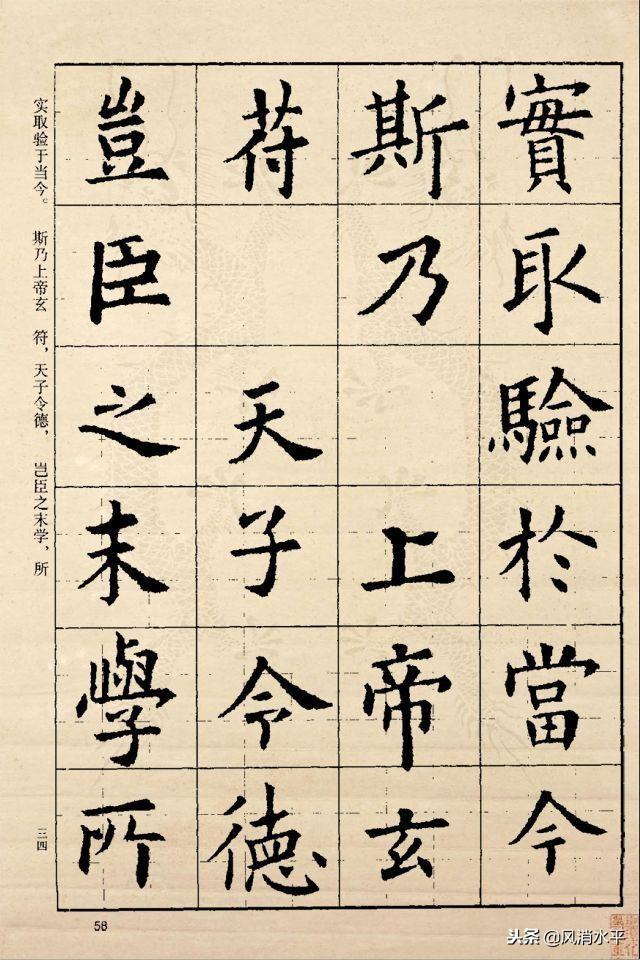 實取驗於當今
斯乃 上帝玄
苻 天子令德
豈臣之末學所
实取验于当今。 斯乃上帝玄 符，天子令德， 岂臣之末学，所
三四
58
头条 @风消水平